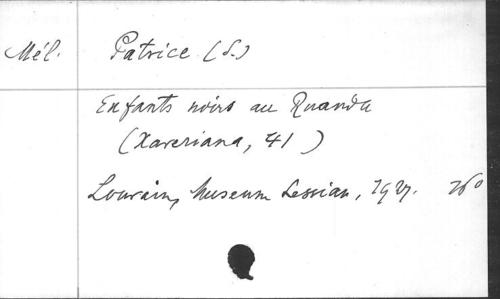 Mél. Patrice (S.)
Enfants noirs au Ruanda
(Xaveriana, 41)
Louvain, Museum Lessian, 1927. 16°